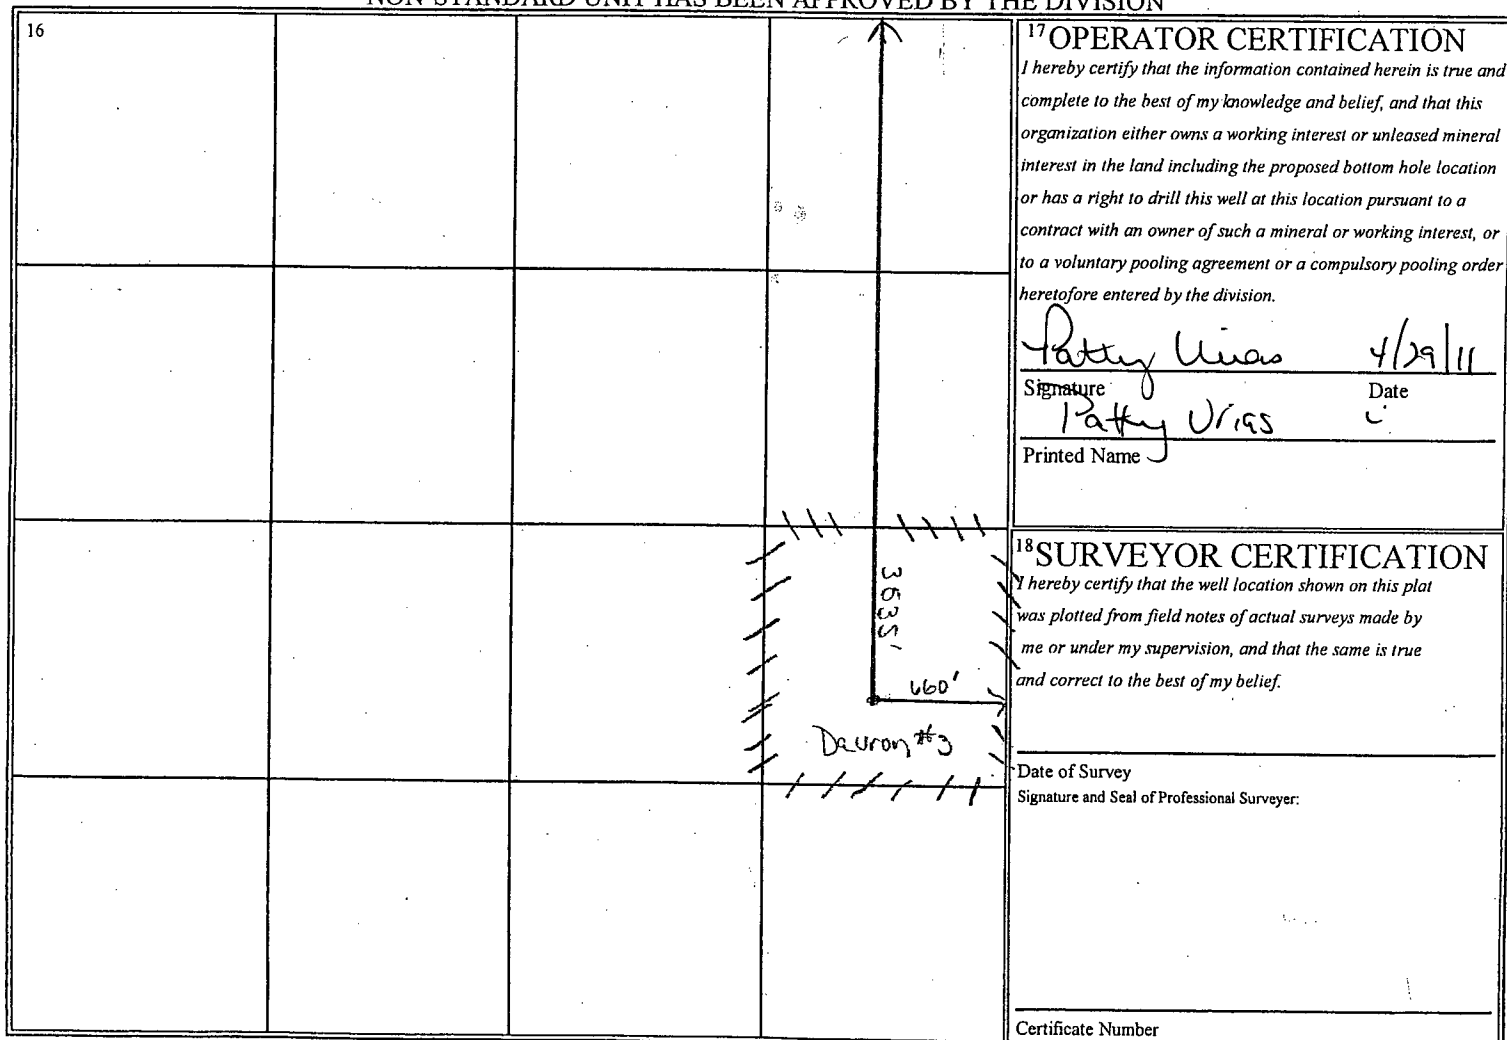 NON-STANDARD UNIT HAS BEEN APPROVED BY THE DIVISION
16
3635'
660'
Dauron #3
17 OPERATOR CERTIFICATION
I hereby certify that the information contained herein is true and
complete to the best of my knowledge and belief, and that this
organization either owns a working interest or unleased mineral
interest in the land including the proposed bottom hole location
or has a right to drill this well at this location pursuant to a
contract with an owner of such a mineral or working interest, or
to a voluntary pooling agreement or a compulsory pooling order
heretofore entered by the division.
Patty Urias 4/29/11
Signature Date
Patty Urias
Printed Name
18 SURVEYOR CERTIFICATION
I hereby certify that the well location shown on this plat
was plotted from field notes of actual surveys made by
me or under my supervision, and that the same is true
and correct to the best of my belief.
Date of Survey
Signature and Seal of Professional Surveyer:
Certificate Number